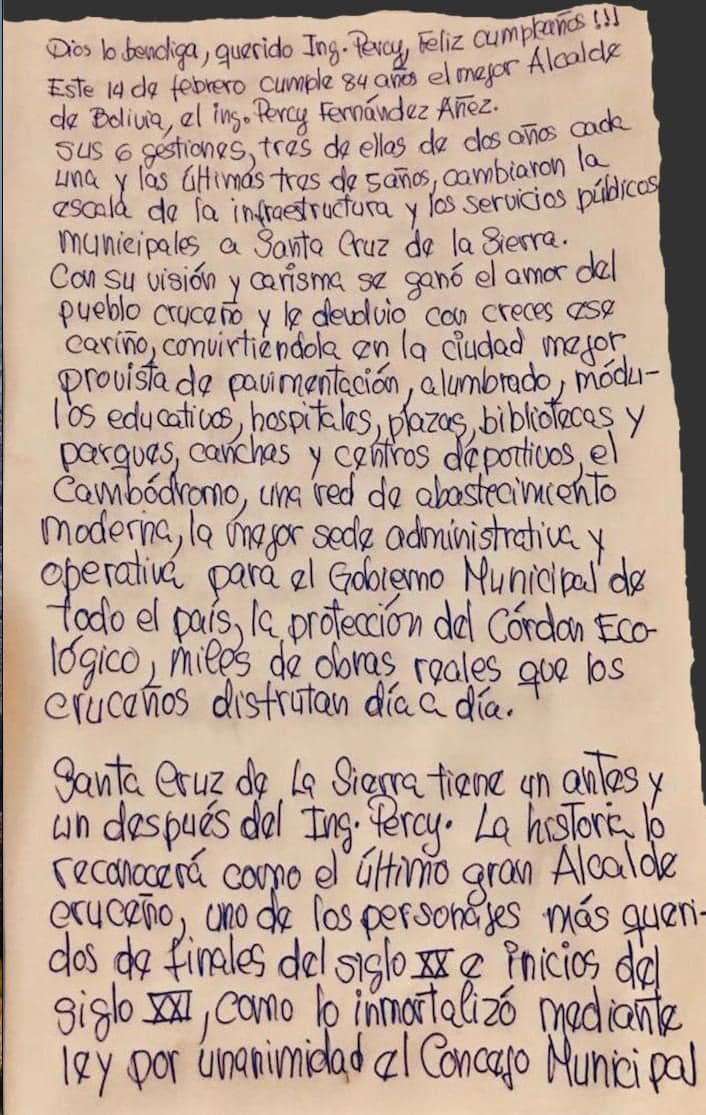 Dios lo bendiga, querido Ing. Percy, Feliz cumpleaños !!!
Este 14 de febrero cumple 84 años el mejor Alcalde
de Bolivia, el ing. Percy Fernández Añez.
sus 6 gestiones, tres de ellas de dos años cada
una y las últimas tres de 5 años, cambiaron la
escala de la infraestructura y los servicios públicos
municipales a Santa Cruz de la Sierra.
Con su visión y carisma se ganó el amor del
pueblo cruceño y le devolvio con creces ese
cariño, convirtiéndola en la ciudad mejor
provista de pavimentación, alumbrado, módu-
los educativos, hospitales, plazas, bibliotecas y
parques, canchas y centros deportivos, el
Cambódromo, una red de abastecimiento
moderna, la mejor sede administrativa y
operativa para el Gobierno Municipal de
todo el país, la protección del Córdon Eco-
lógico, miles de obras reales que los
cruceños disfrutan día a día.
Santa Cruz de La Sierra tiene un antes y
un después del Ing. Percy. La historia lo
reconocerá como el último gran Alcalde
cruceño, uno de los personajes más queri-
dos de finales del siglo XX e inicios del
siglo XXI, como lo inmortalizó mediante
ley por unanimidad el Concejo Municipal